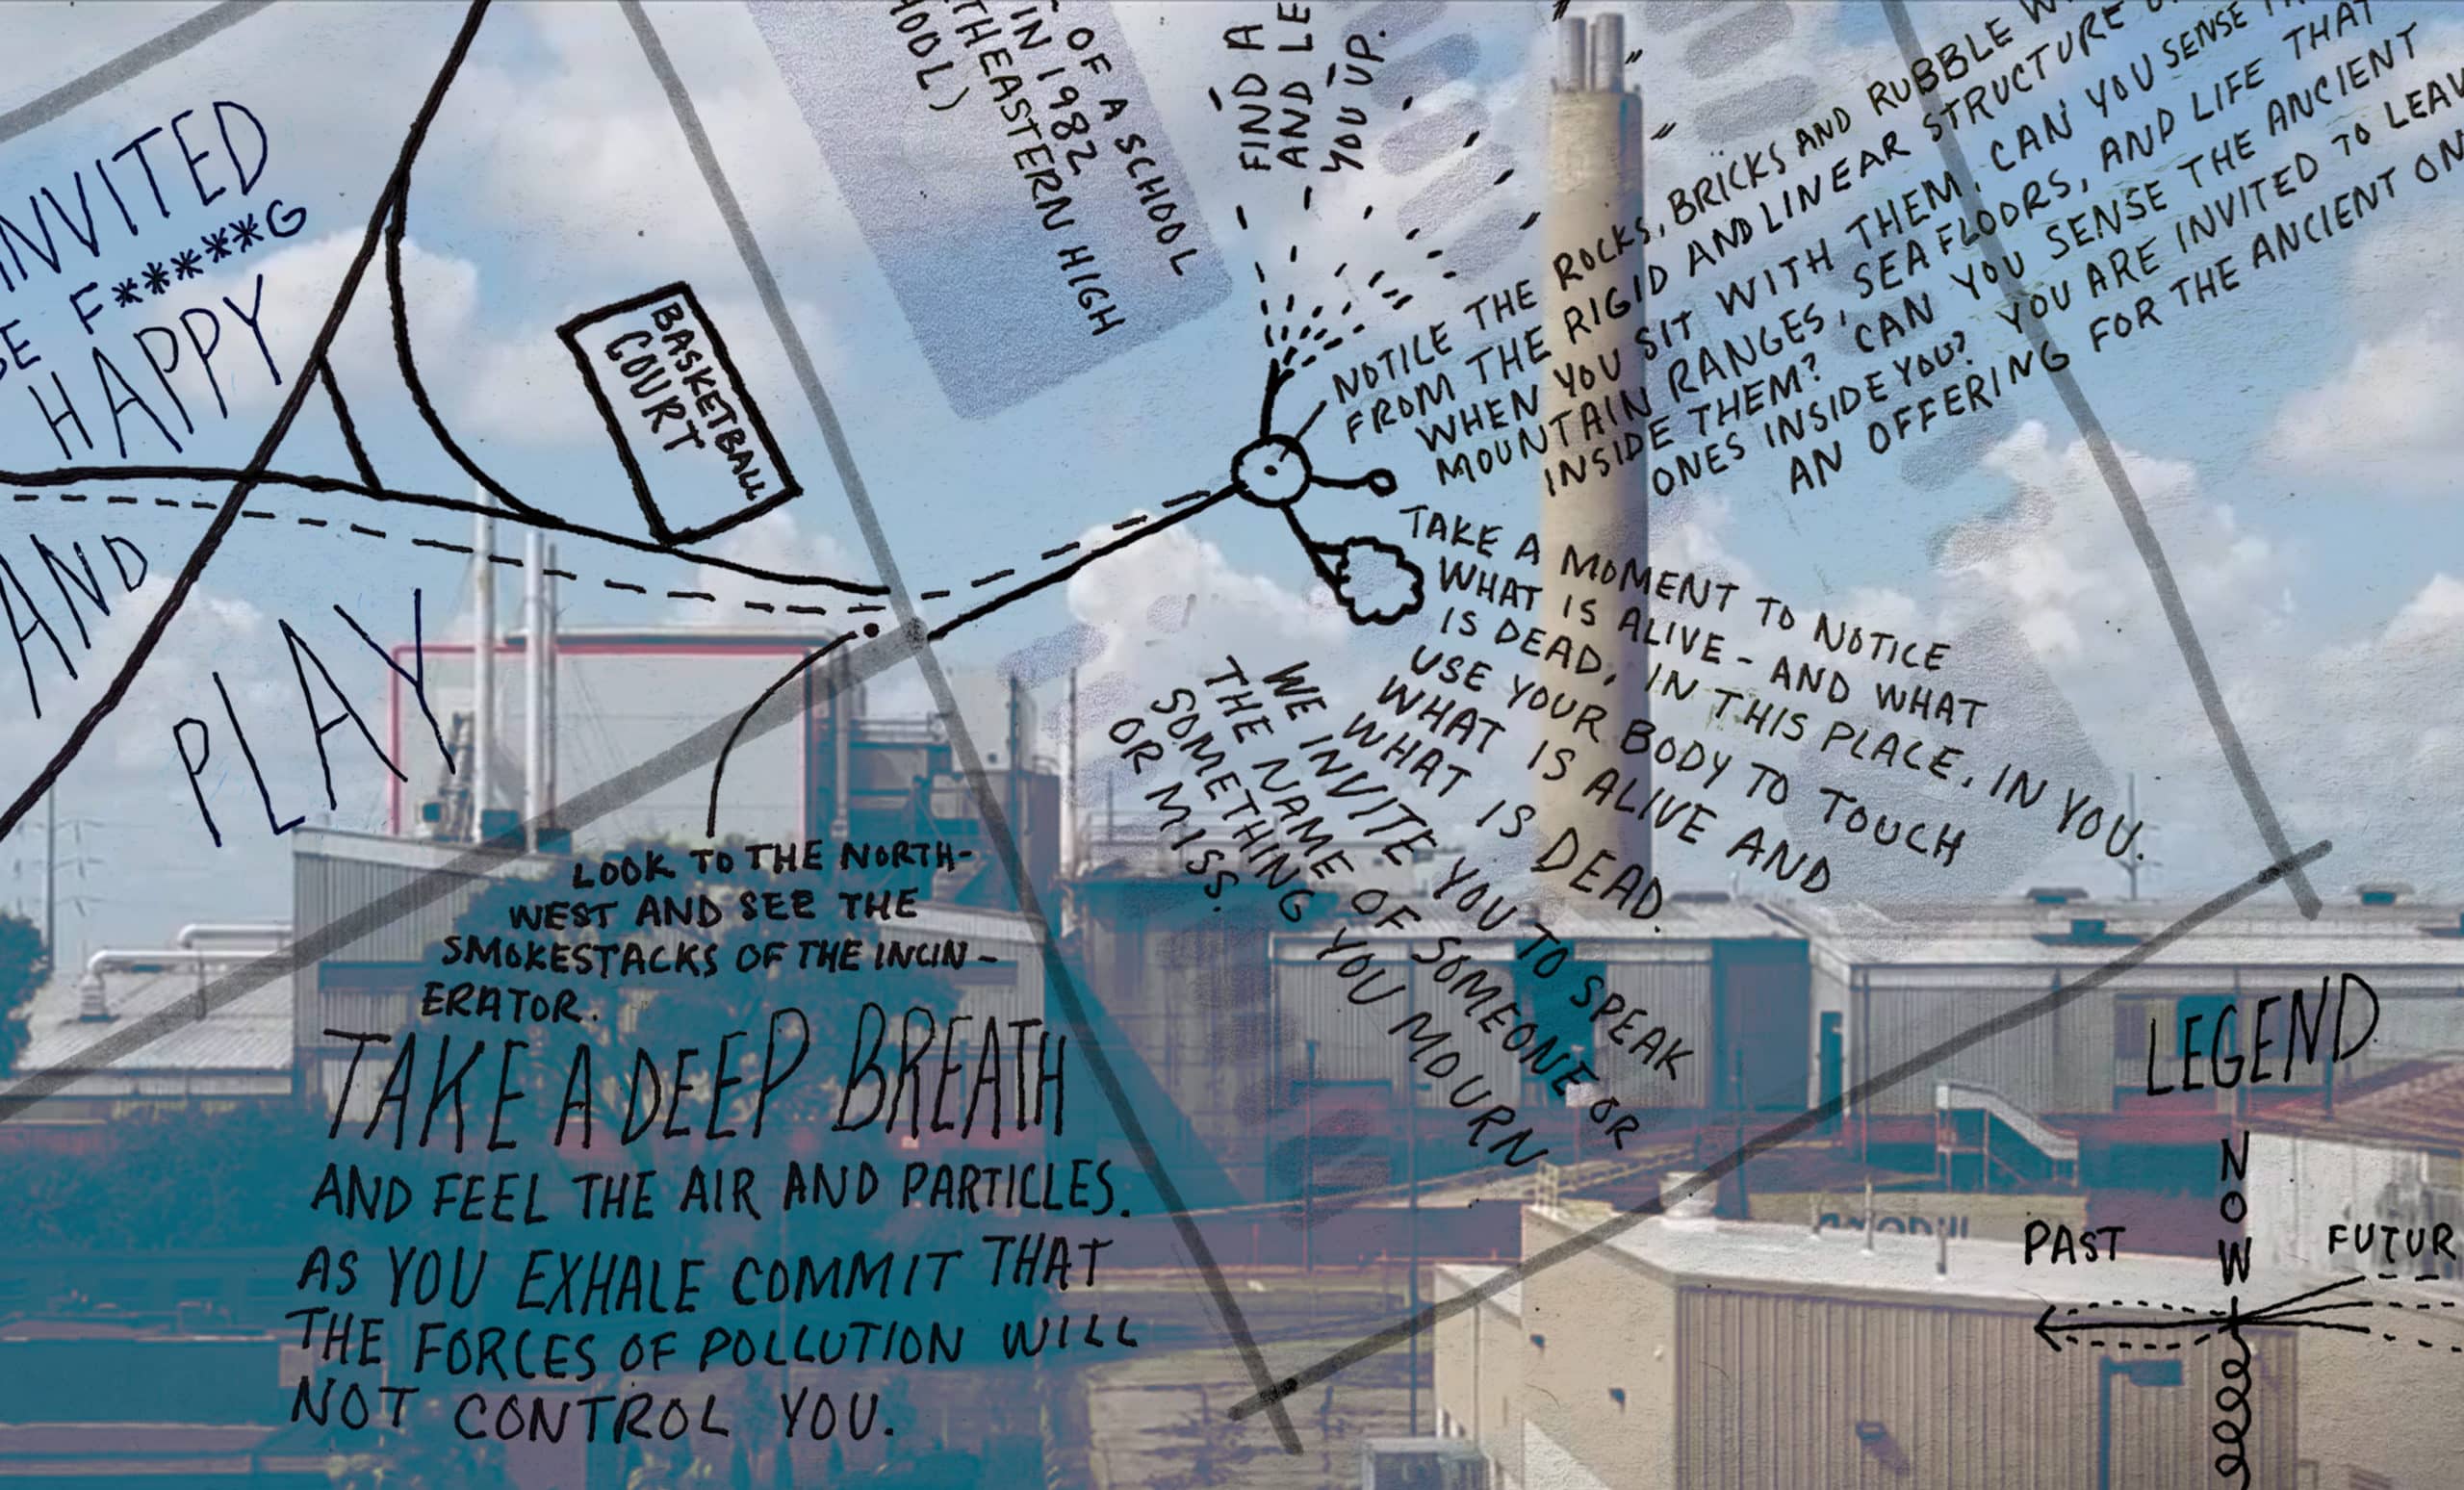 INVITED
F*****G
HAPPY
AND
PLAY
BASKETBALL
COURT
OF A SCHOOL
IN 1982
THEASTERN HIGH
OOL)
FIND A
AND LE
YOU UP.
NOTICE THE ROCKS, BRICKS AND RUBBLE
FROM THE RIGID AND LINEAR STRUCTURE
WHEN YOU SIT WITH THEM, CAN YOU SENSE
MOUNTAIN RANGES, SEA FLOORS, AND LIFE THAT
INSIDE THEM? CAN YOU SENSE THE ANCIENT
ONES INSIDE YOU? YOU ARE INVITED TO LEAV
AN OFFERING FOR THE ANCIENT ON
TAKE A MOMENT TO NOTICE
WHAT IS ALIVE - AND WHAT
IS DEAD, IN THIS PLACE, IN YOU.
USE YOUR BODY TO TOUCH
WHAT IS ALIVE AND
WHAT IS DEAD.
WE INVITE YOU TO SPEAK
THE NAME OF SOMEONE OR
SOMETHING YOU MOURN
OR MISS.
LOOK TO THE NORTH-
WEST AND SEE THE
SMOKESTACKS OF THE INCIN-
ERATOR.
TAKE A DEEP BREATH
AND FEEL THE AIR AND PARTICLES.
AS YOU EXHALE COMMIT THAT
THE FORCES OF POLLUTION WILL
NOT CONTROL YOU.
LEGEND
NOW
PAST
FUTUR